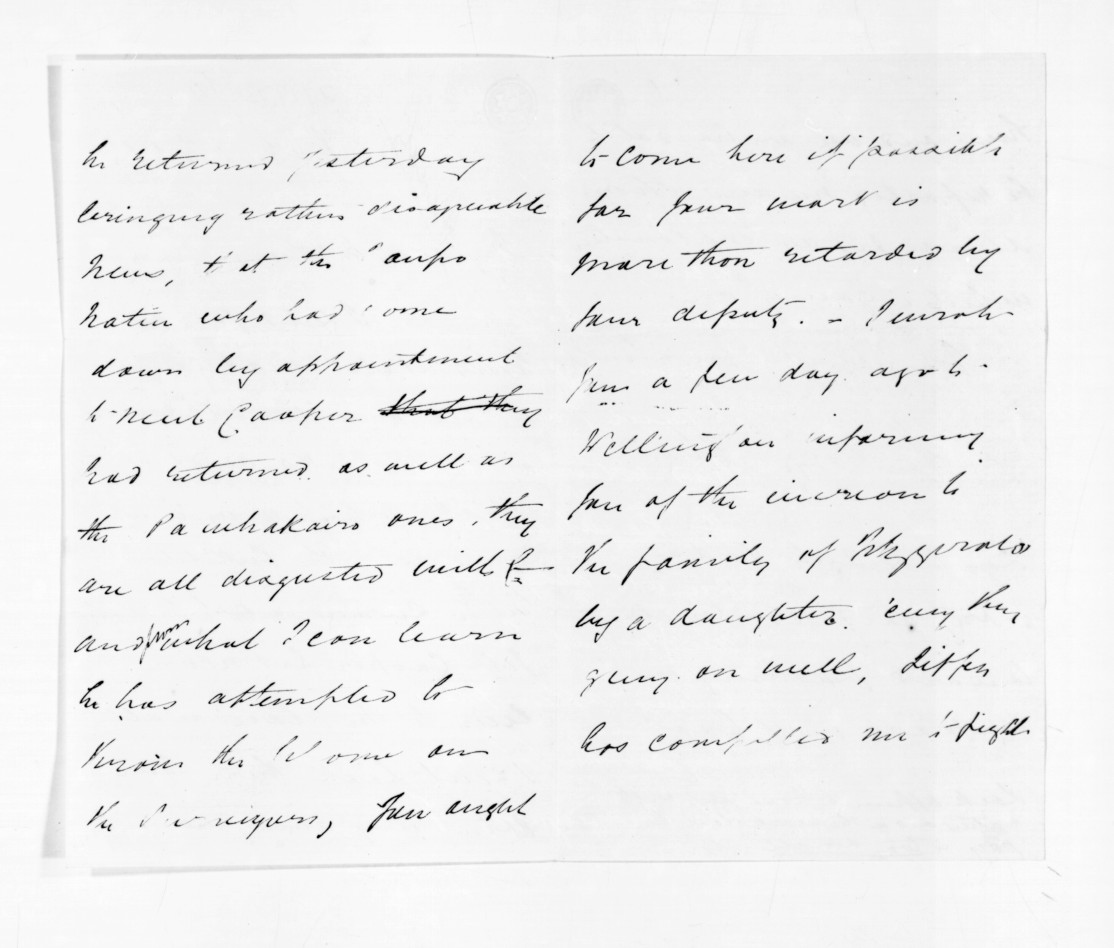 he returned yesterday
bringing rather disagreeable
news, that the Taupo
Natives who had come
down by appointment
to meet Cooper that they
had returned as well as
the Pawhakairo ones, they
are all disgusted with
and from what I can learn
he has attempted to
throw the blame on
the Surveyors, you ought
to come here if possible
for your work is
more than retarded by
your deputy. - I wrote
you a few day ago to
Wellington informing
you of the increase to
the family of Fitzgerald
by a daughter. every thing
going on well, Tiffen
has compelled me to